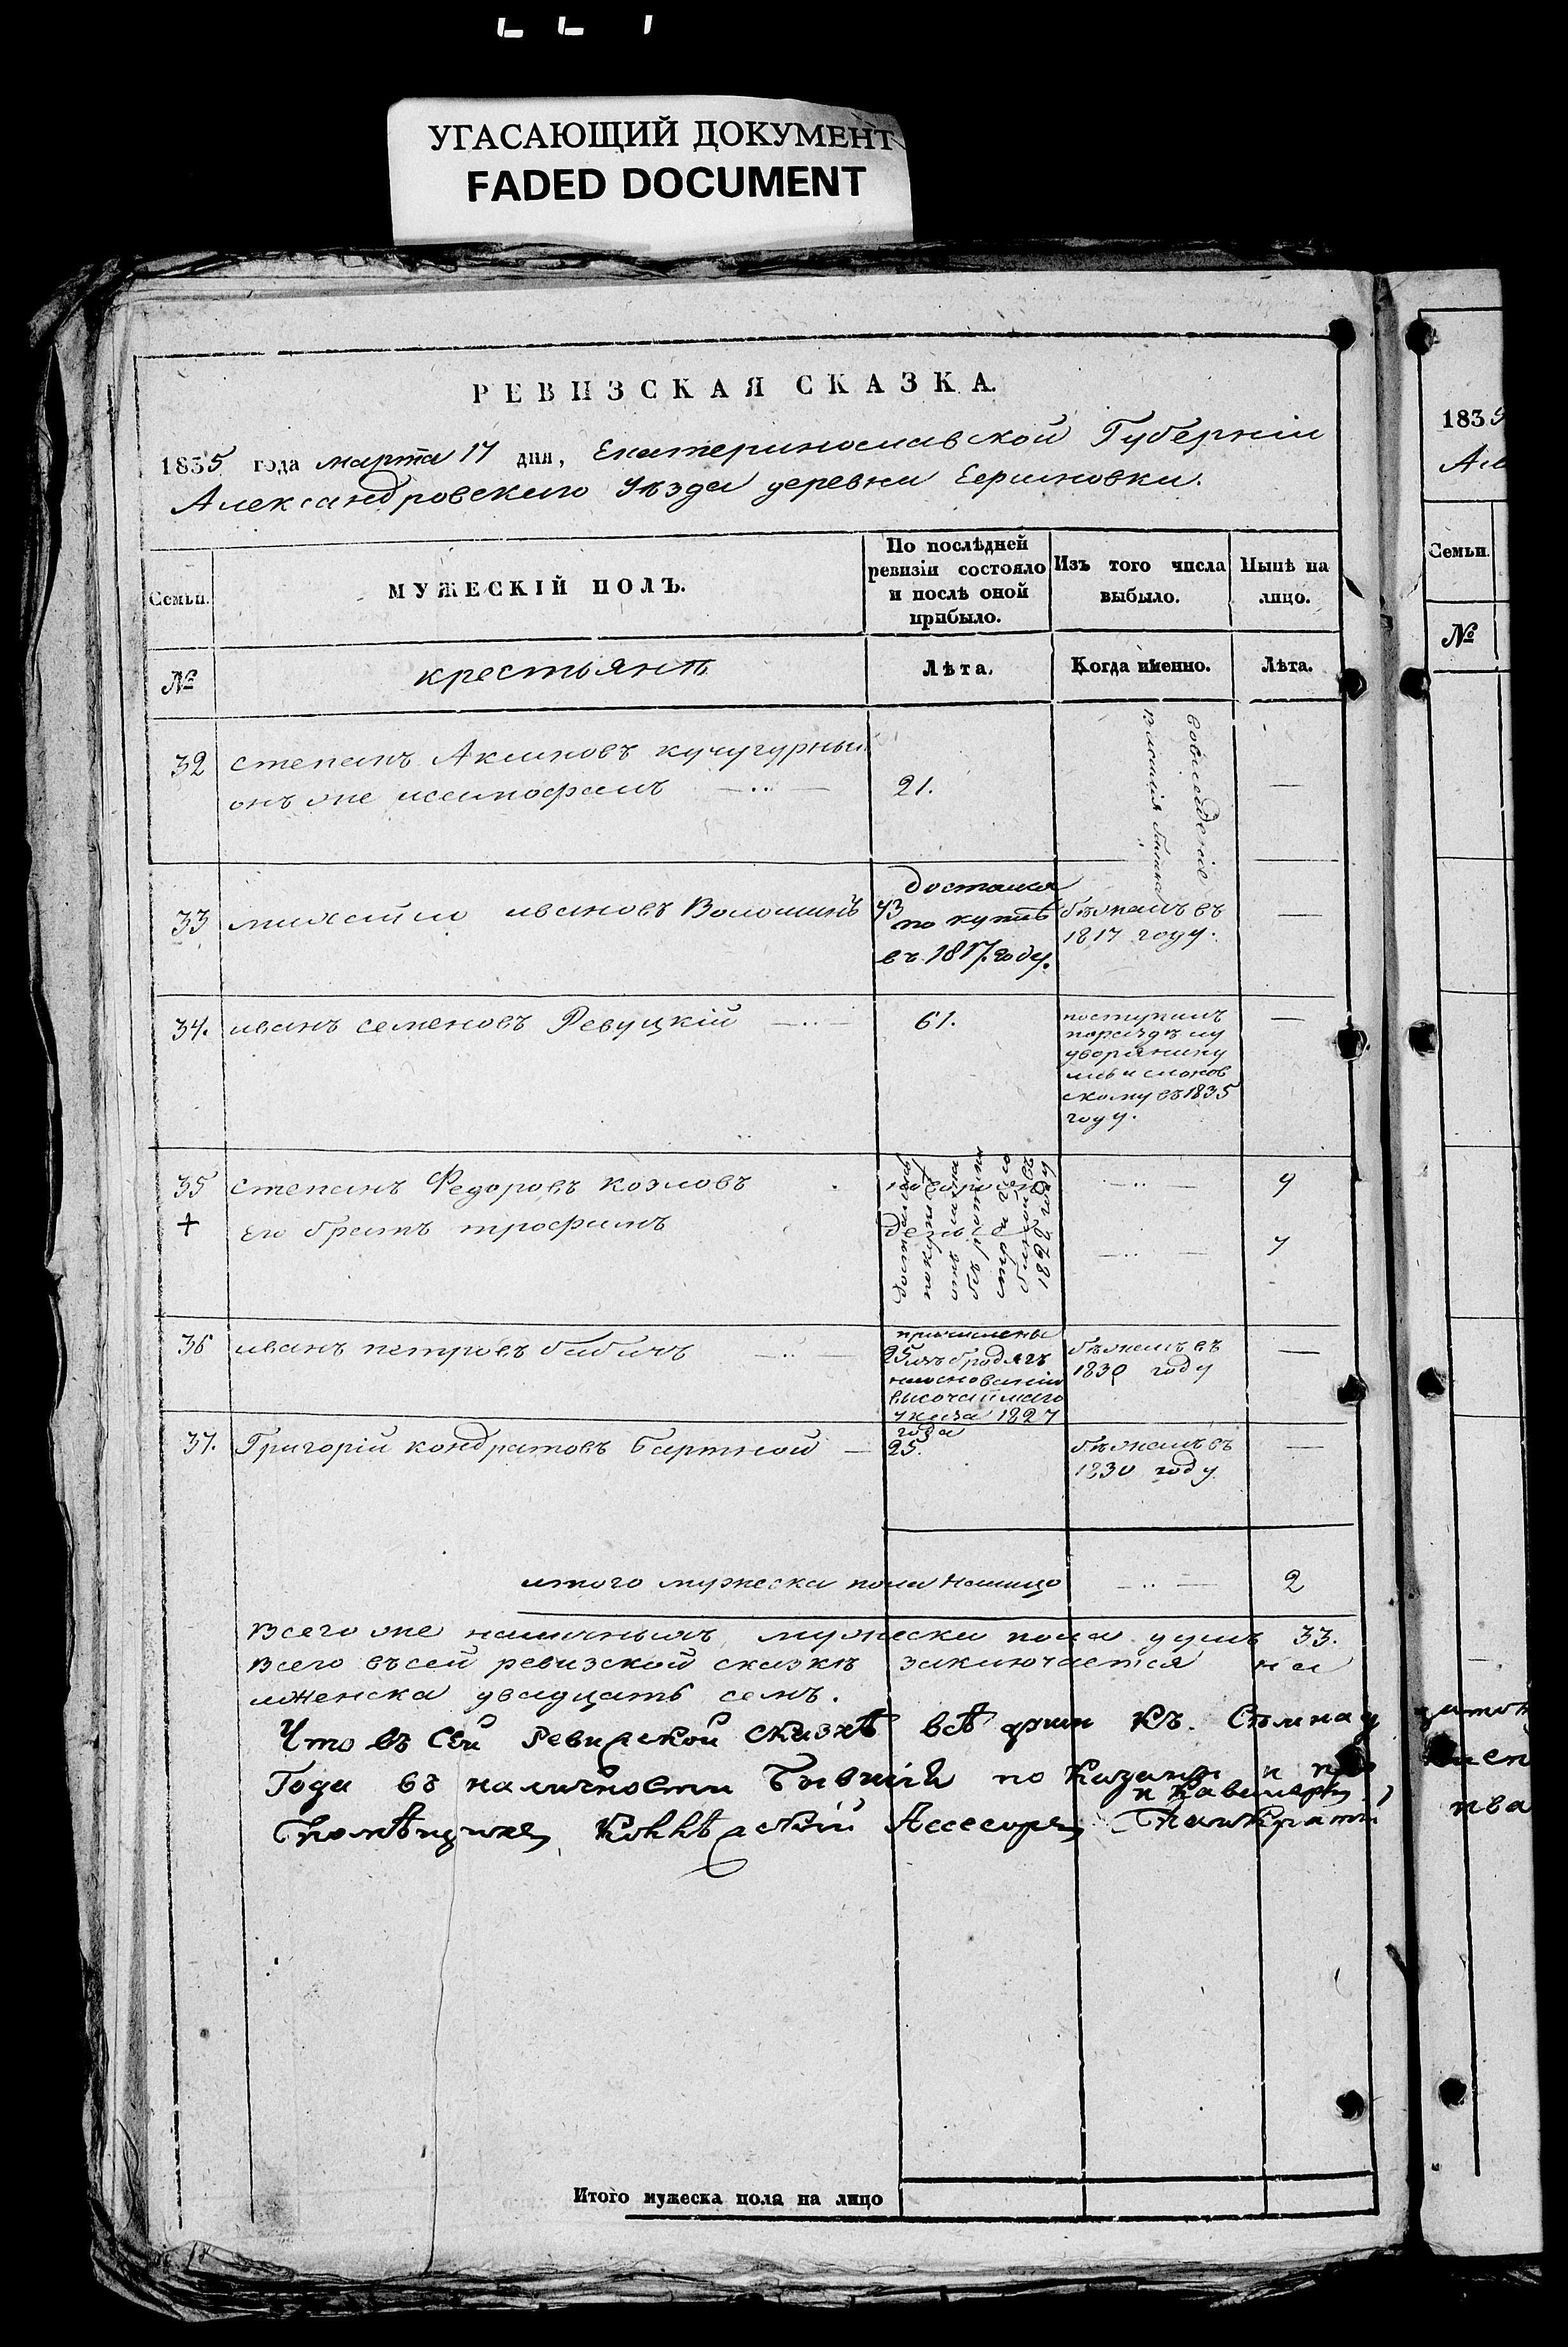 УГАСАЮЩИЙ ДОКУМЕНТ
FADED DOCUMENT
РЕВИЗСКАЯ СКАЗКА.
1835 года марта 17 дня, Екатеринославской Губерніи
Александровского уѣзда деревни
Семьи.
МУЖЕСКІЙ ПОЛЪ.
По послѣдней
ревизіи состояло
и послѣ оной
прибыло.
Изъ того числа
выбыло.
Нынѣ на
лицо.
№
крестьянѣ
Лѣта.
Когда именно.
Лѣта.
32 степанъ Акимовъ кучугурный
онъ же 21. —
33 михайло ивановъ Волошинъ
43 достался
по купчѣ
въ 1817. году.
бѣжалъ въ
1817 году. —
34. иванъ семеновъ Ревуцкій 61.
поступилъ
дворянину
скому въ 1835
году. —
35 степанъ Федоровъ козловъ 9
+ Его братъ трофимъ 7
1829 году
36 иванъ петровъ бабичъ
причислены
25 изъ бродягъ
на основаніи
высочайшаго
указа 1827
года
бѣжалъ въ
1830 году —
37. Григорій кондратовъ бартной — 25.
бѣжалъ въ
1830 году —
итого мужеска пола налицо 2
Всего же наличныхъ мужеска пола душъ 33.
Всего въ сей ревизской сказкѣ заключается на
двадцать семъ.
Что въ Сей Ревизской сказкѣ всѣ души къ
Года въ наличности Бывшія по Казаны и
и Кавалеръ
Помѣщикъ Коллѣжскій Ассесоръ
Итого мужеска пола на лицо
1835
Ал
Семьи.
№